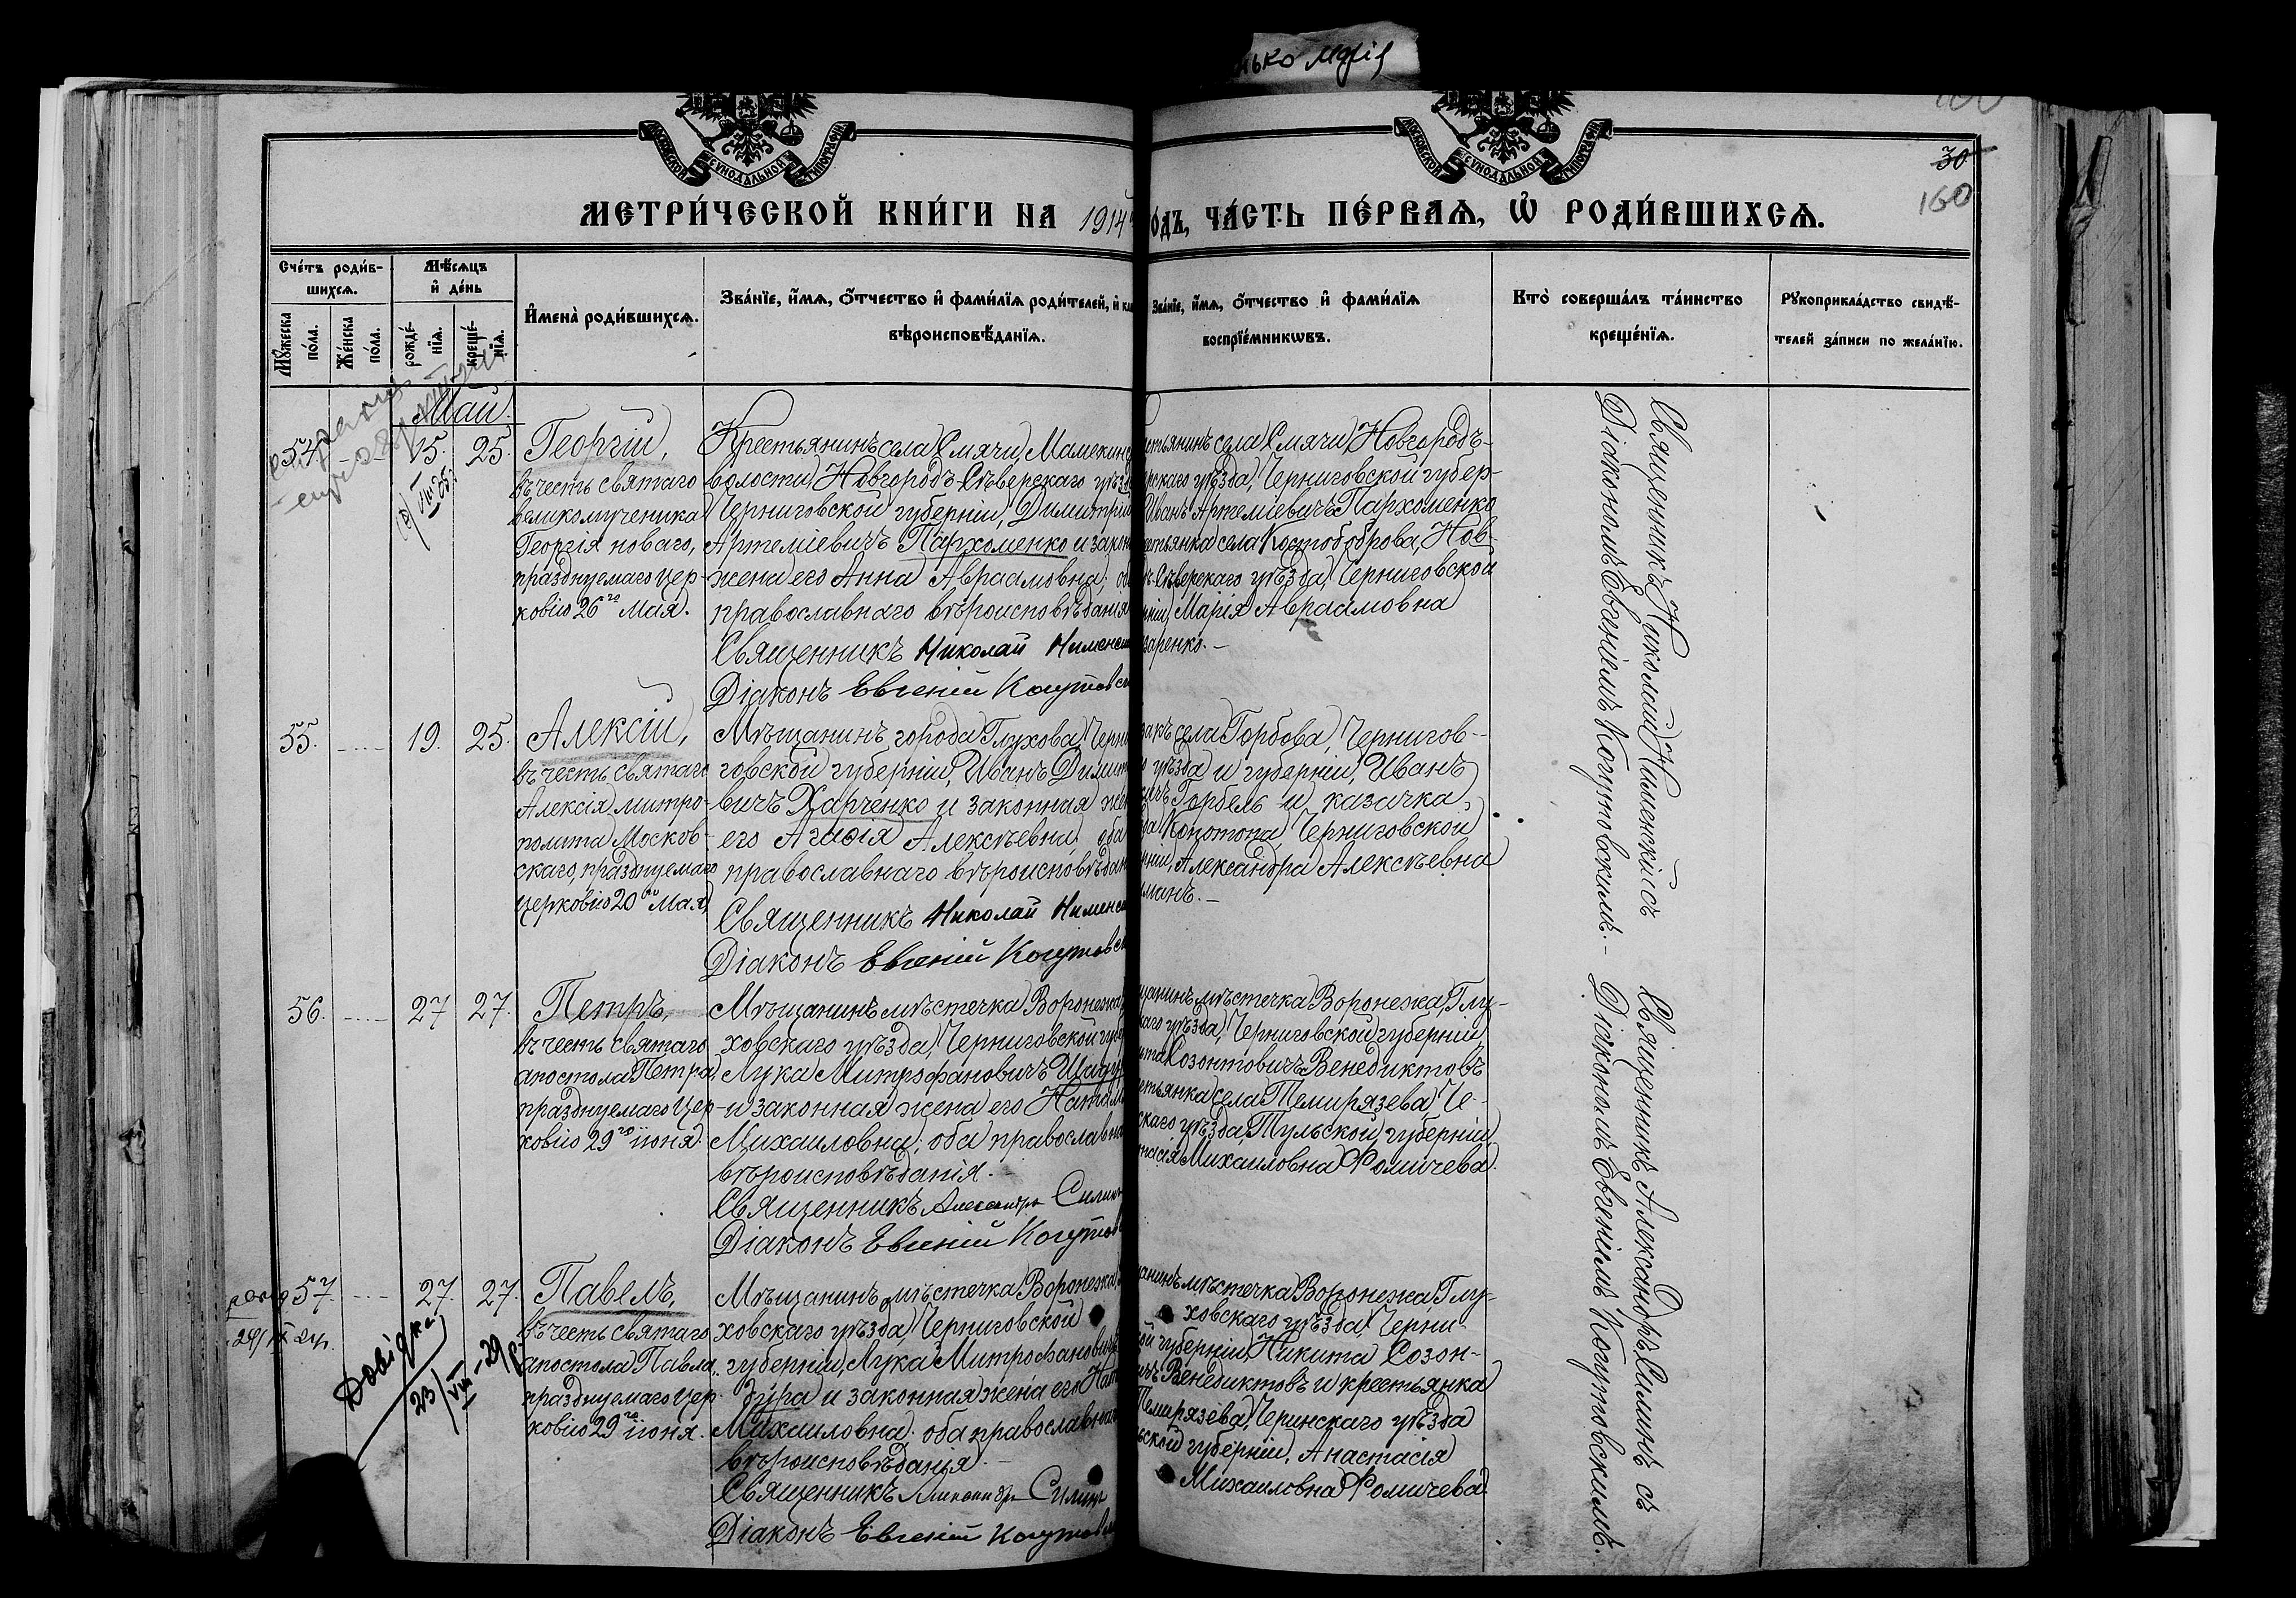 лько Марія
МОСКОВСКОЙ СѴНОДАЛЬНОЙ ТИПОГРАФІИ
МОСКОВСКОЙ СѴНОДАЛЬНОЙ ТИПОГРАФІИ
30
160
МЕТРИ́ЧЕСКОЙ КНИ́ГИ НА 1914
о́дъ, ЧА́СТЬ ПЕ́РВАѦ, Ѽ РОДИ́ВШИХСѦ.
Сче́тъ роди́в-
шихсѧ.
Мꙋ́жеска по́ла.
Же́нска по́ла.
Мѣ́сѧцъ и҆ де́нь
рожде́-нїѧ.
креще́-нїѧ.
И҆мена̀ роди́вшихсѧ.
Зва́нїе, и҆́мѧ, ѻ҆́тчество и҆ фами́лїѧ роди́телей, и҆ как
вѣроисповѣ́данїѧ.
Зва́нїе, и҆́мѧ, ѻ҆́тчество и҆ фами́лїѧ
воспрїе́мникѡвъ.
Кто̀ соверша́лъ та́инство
креще́нїѧ.
Рꙋкоприкла́дство свидѣ́-
телей за́писи по жела́нїю.
Май.
54. 15. 25.
Георгій,
въ честь святаго
великомученика
Георгія новаго,
празднуемаго цер-
ковію 26го Мая.
Крестьянинъ села Смячи Мамекинс
волости, Новгородъ-Сѣверскаго уѣзд
Черниговской губерніи, Димитрій
Артеміевичъ Пархоменко и закон
жена его Анна Авраамовна; об
православнаго вѣроисповѣданія
Священникъ Николай Нименск
Діаконъ Евгеній Когутовск
стьянинъ села Смячи Новгородъ-
рскаго уѣзда, Черниговской губер-
Иванъ Артеміевичъ Пархоменко
стьянка села Костобоброва, Нов-
ъ-Сѣверскаго уѣзда Черниговской
рніи, Марія Авраамовна
заренко.-
Священникъ Николай Нименскій съ
Діакономъ Евгеніемъ Когутовскимъ.-
55. 19. 25.
Алексій,
въ честь святаго
Алексія митро-
полита Москов-
скаго, празднуемаго
церковію 20го Мая
Мѣщанинъ города Глухова Черни
говской губерніи, Иванъ Димит
вичъ Харченко и законная же
его Агафія Алексѣевна; оба
православнаго вѣроисповѣдан
Священникъ Николай Нименск
Діаконъ Евгеній Когутовск
закъ села Горбова, Чернигов-
о уѣзда и губерніи, Иванъ
ичъ Горбель и казачка,
да Конотопа, Черниговской
рніи, Александра Алексѣевна
манъ.-
56. 27 27.
Петръ,
въ честь святаго
апостола Петра,
празднуемаго цер-
ковію 29го іюня.
Мѣщанинъ мѣстечка Воронежа,
ховскаго уѣзда, Черниговской губе
Лука Митрофановичъ
и законная жена его Ната
Михаиловна; оба православна
вѣроисповѣданія.
Священникъ Александръ Силин
Діаконъ Евгеній Когутов
щанинъ мѣстечка Воронежа, Глу-
каго уѣзда, Черниговской губерніи,
ита Созонтовичъ Венедиктовъ
стьянка села Темирязева, Че-
скаго уѣзда, Тульской губерніи
тасія Михаиловна Фомичева.
Священникъ Александръ Силинъ съ
Діакономъ Евгеніемъ Когутовскимъ.
57. 27. 27.
Довідка
23/VIII-29р.
Павелъ,
въ честь святаго
апостола Павла,
празднуемаго цер-
ковію 29го іюня.
Мѣщанинъ мѣстечка Воронежа,
ховскаго уѣзда, Черниговской
губерніи, Лука Митрофановичъ
дура и законная жена его Ната
Михаиловна; оба православнаго
вѣроисповѣданія.-
Священникъ Александръ Силинъ
Діаконъ Евгеній Когутов
щанинъ мѣстечка Воронежа Глу-
ховскаго уѣзда, Черни-
кой губерніи, Никита Созон-
чъ Венедиктовъ и крестьянка
Темирязева, Чернскаго уѣзда
ьской губерніи, Анастасія
Михаиловна Фомичева.